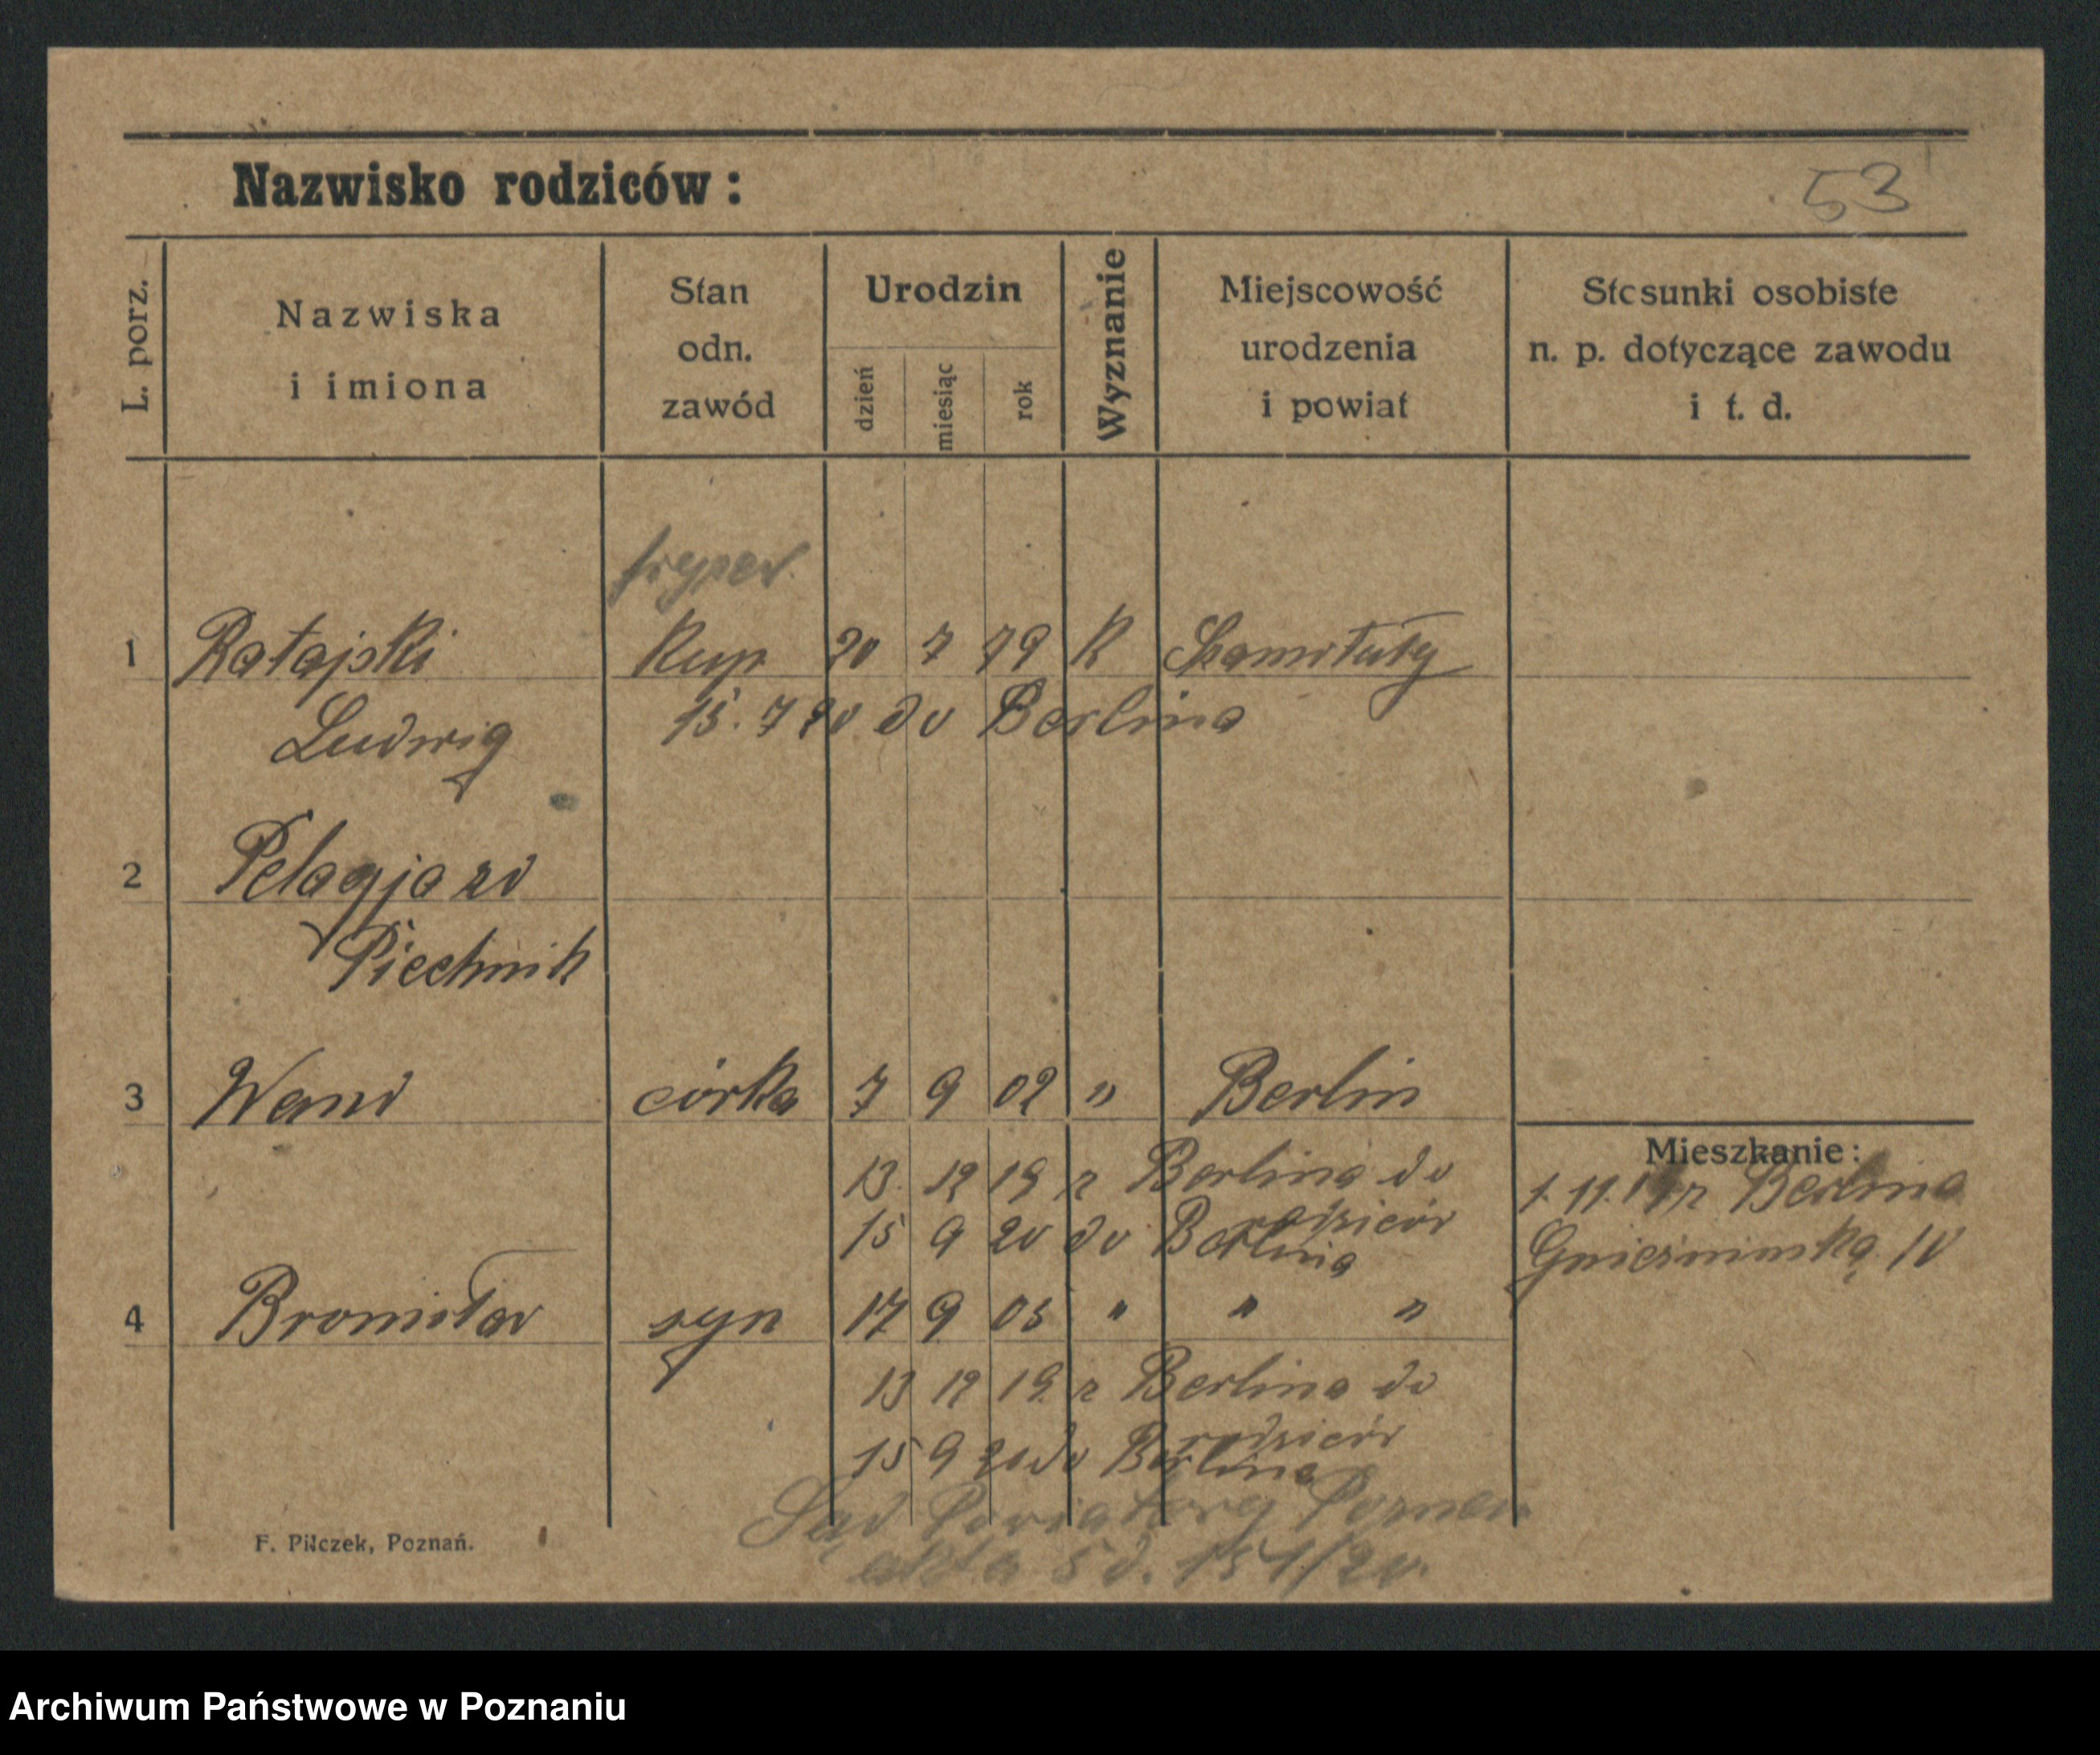 Nazwisko rodziców:
53
L. porz.
Nazwiska
i imiona
Stan
odn.
zawód
Urodzin
dzień
miesiąc
rok
Wyznanie
Miejscowość
urodzenia
i powiat
Stosunki osobiste
n. p. dotyczące zawodu
i t. d.
1 Ratajski Kup 20 7 79 K Szamotuły
Ludwig 15. 7 20 do Berlina
2 Pelagja zd
Piechnik
3 Wand córka 7 9 02 " Berlin
Mieszkanie:
13. 12 19 z Berlina do
rodziców
1. 11. z Berlina
15 9 20 do Berlina
Gnieźnieńska 10
4 Bronisław syn 17 9 05 " " "
13 12 19 z Berlina do
rodziców
15 9 20 do Berlina
Sąd Powiatowy Poznań
akta 5 d. 151/20.
F. Pilczek, Poznań.
Archiwum Państwowe w Poznaniu